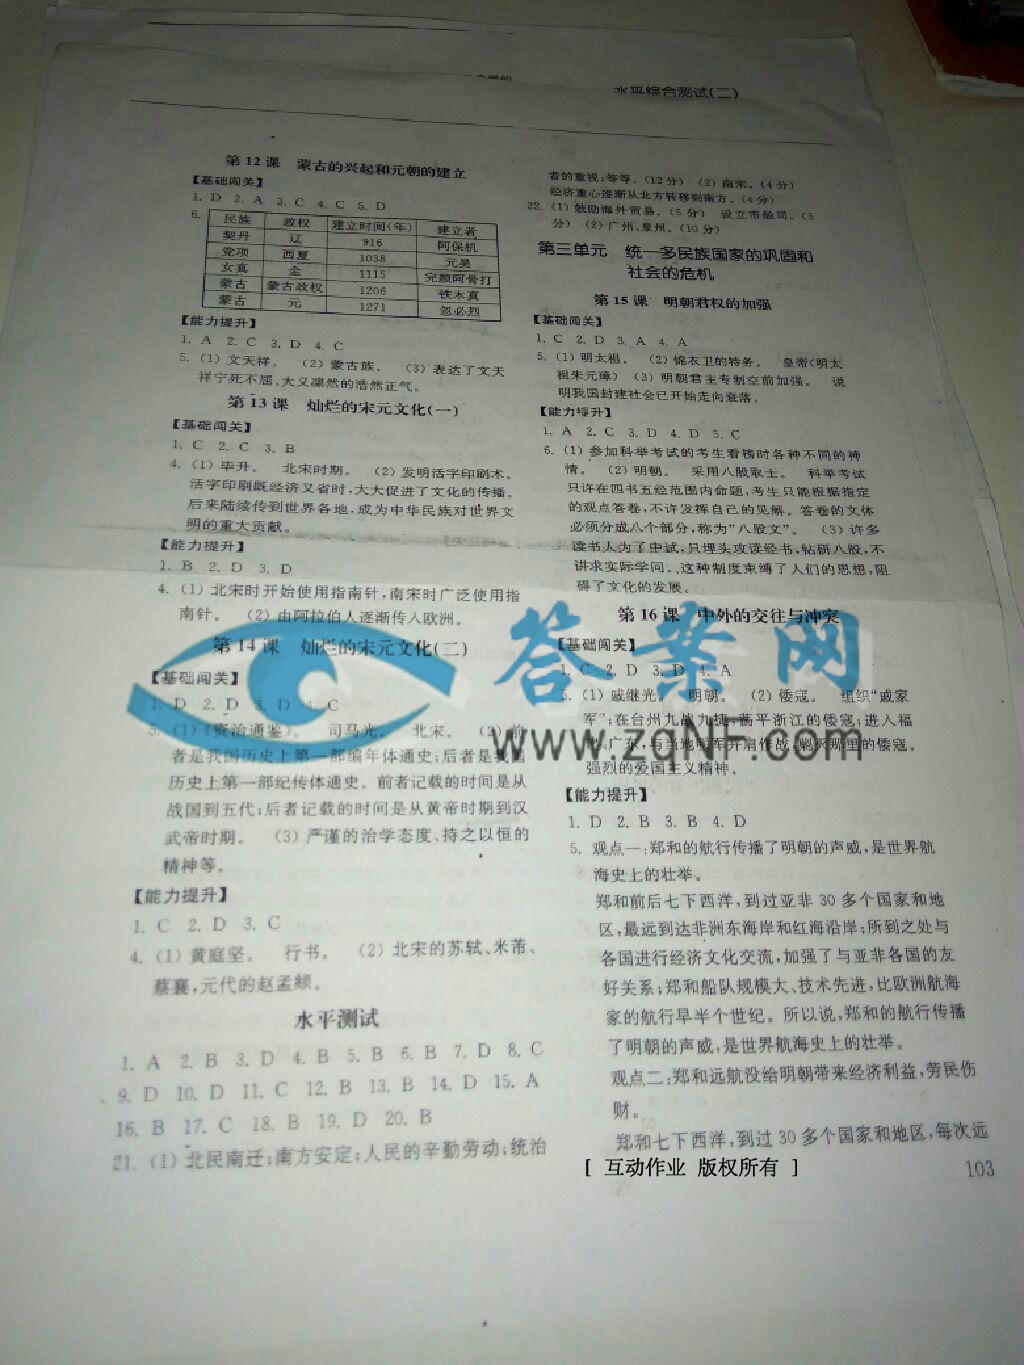 水平综合测试(二)
第12课 蒙古的兴起和元朝的建立
【基础闯关】
1. D 2. A 3. C 4. C 5. D
6.
民族 政权 建立时间(年) 建立者
契丹 辽 916 阿保机
党项 西夏 1038 元昊
女真 金 1115 完颜阿骨打
蒙古 蒙古政权 1206 铁木真
蒙古 元 1271 忽必烈
【能力提升】
1. A 2. C 3. D 4. C
5. (1) 文天祥。 (2) 蒙古族。 (3) 表达了文天
祥宁死不屈、大义凛然的浩然正气。
第13课 灿烂的宋元文化(一)
【基础闯关】
1. C 2. C 3. B
4. (1) 毕升。 北宋时期。 (2) 发明活字印刷术。
活字印刷既经济又省时,大大促进了文化的传播。
后来陆续传到世界各地,成为中华民族对世界文
明的重大贡献。
【能力提升】
1. B 2. D 3. D
4. (1) 北宋时开始使用指南针,南宋时广泛使用指
南针。 (2) 由阿拉伯人逐渐传入欧洲。
第14课 灿烂的宋元文化(二)
【基础闯关】
1. D 2. D 3. D 4. C
5. (1)《资治通鉴》。 司马光。 北宋。 (2) 前
者是我国历史上第一部编年体通史;后者是我国
历史上第一部纪传体通史。前者记载的时间是从
战国到五代;后者记载的时间是从黄帝时期到汉
武帝时期。 (3) 严谨的治学态度、持之以恒的
精神等。
【能力提升】
1. C 2. D 3. C
4. (1) 黄庭坚。 行书。 (2) 北宋的苏轼、米芾、
蔡襄,元代的赵孟頫。
水平测试
1. A 2. B 3. D 4. B 5. B 6. B 7. D 8. C
9. D 10. D 11. C 12. B 13. B 14. D 15. A
16. B 17. C 18. B 19. D 20. B
21. (1) 北民南迁;南方安定;人民的辛勤劳动;统治
者的重视;等等。(12分) (2) 南宋。(4分)
经济重心逐渐从北方转移到南方。(4分)
22. (1) 鼓励海外贸易。(5分) 设立市舶司。(5
分) (2) 广州、泉州。(10分)
第三单元 统一多民族国家的巩固和
社会的危机
第15课 明朝君权的加强
【基础闯关】
1. C 2. D 3. A 4. A
5. (1) 明太祖。 (2) 锦衣卫的特务。 皇帝(明太
祖朱元璋) (3) 明朝君主专制空前加强。 说
明我国封建社会已开始走向衰落。
【能力提升】
1. A 2. C 3. D 4. D 5. C
6. (1) 参加科举考试的考生看榜时各种不同的神
情。 (2) 明朝。 采用八股取士。 科举考试
只许在四书五经范围内命题,考生只能根据指定
的观点答卷,不许发挥自己的见解。答卷的文体
必须分成八个部分,称为“八股文”。 (3) 许多
读书人为了中试,只埋头攻读经书,钻研八股,不
讲求实际学问。这种制度束缚了人们的思想,阻
碍了文化的发展。
第16课 中外的交往与冲突
【基础闯关】
1. C 2. D 3. D 4. A
5. (1) 戚继光。 明朝。 (2) 倭寇。 组织“戚家
军”;在台州九战九捷,荡平浙江的倭寇;进入福
广东,与当地明军开启作战,剿灭那里的倭寇。
强烈的爱国主义精神。
【能力提升】
1. D 2. B 3. B 4. D
5. 观点一:郑和的航行传播了明朝的声威,是世界航
海史上的壮举。
郑和前后七下西洋,到过亚非30多个国家和地
区,最远到达非洲东海岸和红海沿岸;所到之处与
各国进行经济文化交流,加强了与亚非各国的友
好关系;郑和船队规模大、技术先进,比欧洲航海
家的航行早半个世纪。所以说,郑和的航行传播
了明朝的声威,是世界航海史上的壮举。
观点二:郑和远航没给明朝带来经济利益,劳民伤
财。
郑和七下西洋,到过30多个国家和地区,每次远
103
答案网
www.zqNF.com
[ 互动作业 版权所有 ]